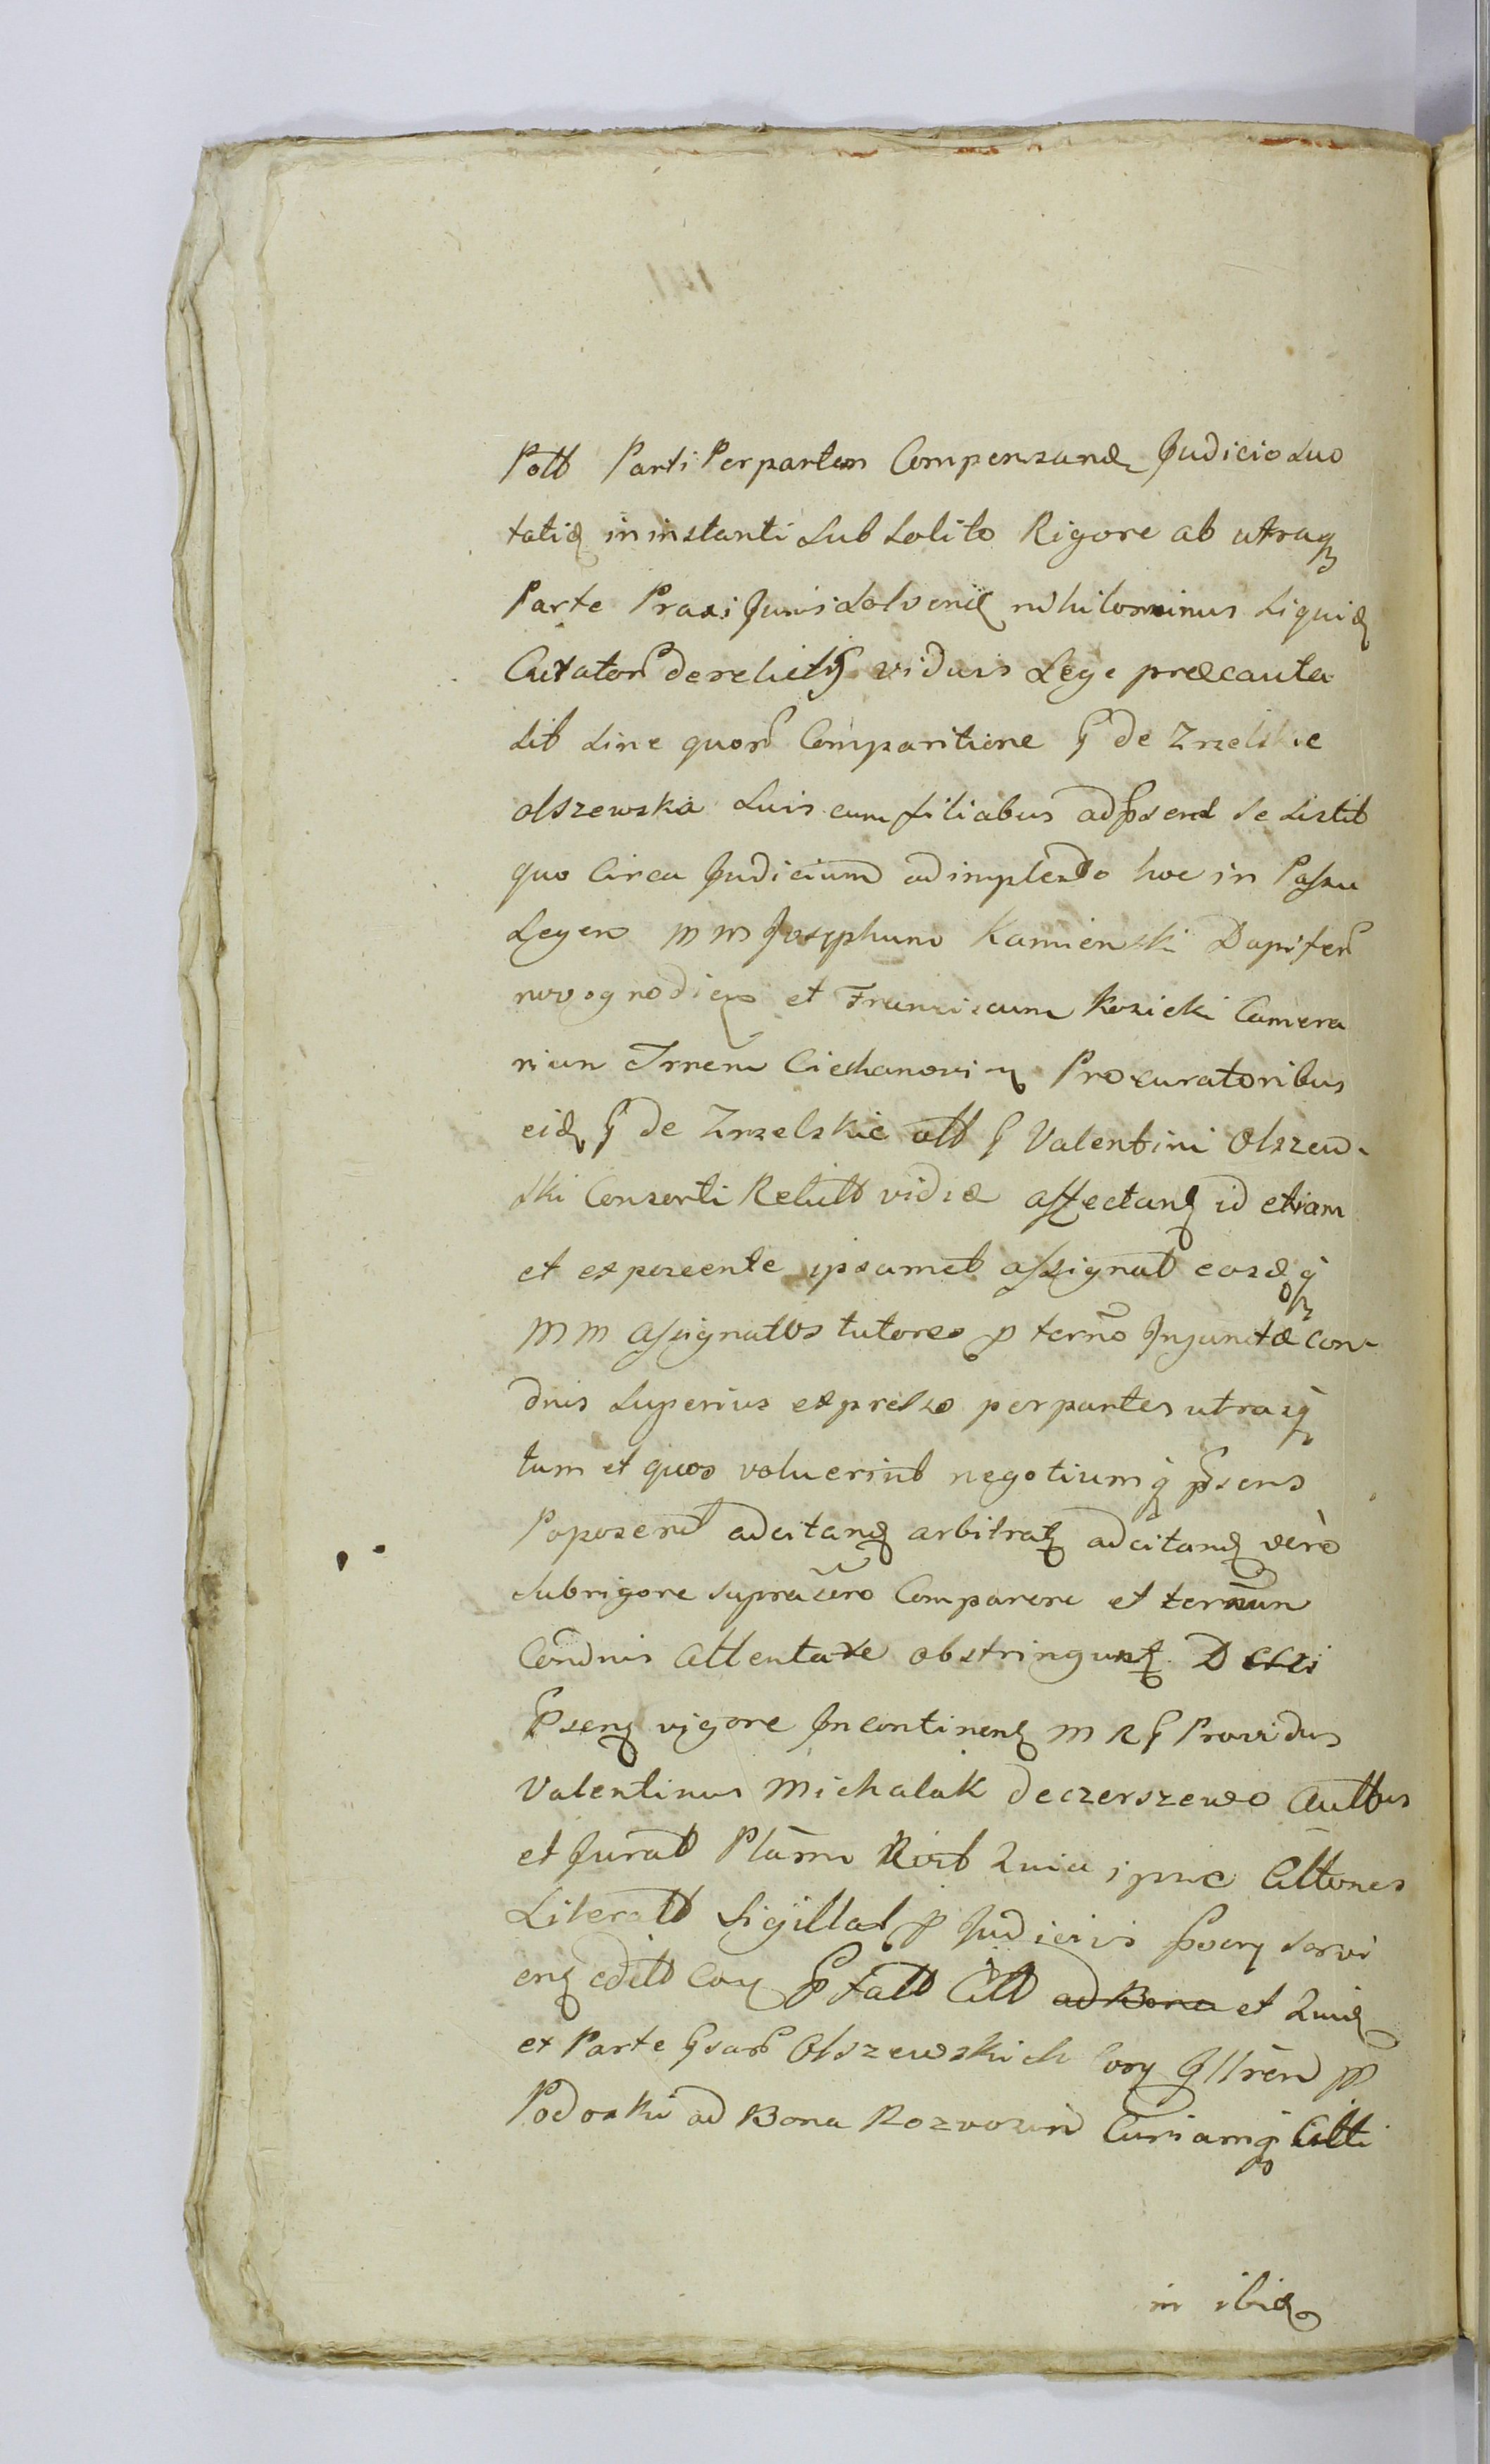 Pott Parti Per partem Compensand Judicio Suo
tatid in instanti Sub Solito Rigore ab utraq
Parte Praxi Juris Solvend nihilominus Siquid
Curator derelictis viduis Lege præcauta
sit Sine quor Comparitione G de Zrzelskie
Olszewska Suis cum filiabus ad psend se Sistit
quo Circa Judicium adimplendo hoc in Passu
Legem M M Josephum Kamienski Dapifer
novogrodien et Franciscum Kozicki Camera
rium Trrem Ciechanovien Procuratoribus
eid G de Zrzelskie olt G Valentini Olszew-
ski Consorti Relict viduæ affectand id etiam
et exposcente ipsamet assignat eosdq
M M assignatos tutores p termo Injunctæ con-
dnis Superius expresso per partes utrasq
tum et quos voluerint negotiumq psens
Poposcerit adcitand arbitrat adcitand verò
sub rigore supra scro Comparere et terminum
Condnis attentare obstringunt. D
Psent vigore Incontinent M R G Providus
Valentinus Michalak de Czerszewo Authus
et Jurat Ptāru Rcit Quia ipse Cittones
Literatt Sigillat p Judiciis psoen servi
ent edit Con P fatt Citt ad Bona et Quid
ex Parte Gsar Olszewskich Con Illren pp
Podoski ad Bona Rozvozin Curiamq Citti
in ibid